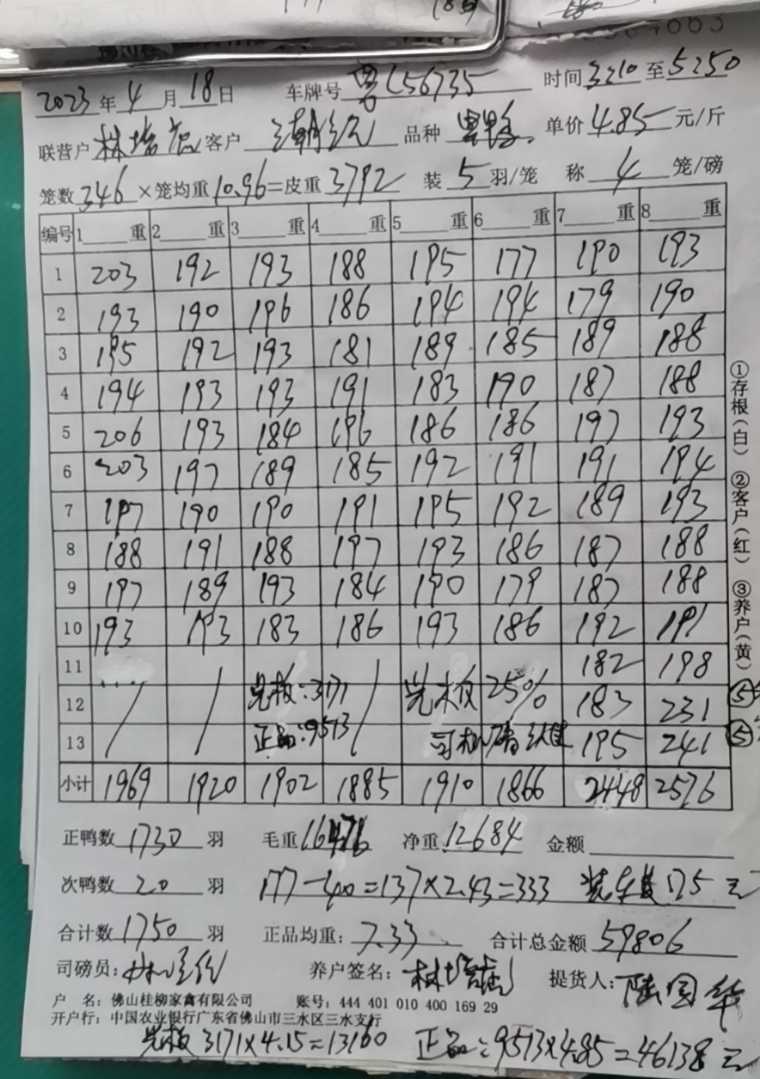 2023年4月18日 车牌号 粤L56735 时间3:10至5:50
联营户 林培 客户 潮红 品种 单价4.85元/斤
笼数346×笼均重10.96=皮重3792 装5羽/笼 称4笼/磅
编号 1 重 2 重 3 重 4 重 5 重 6 重 7 重 8 重
1 203 192 193 188 195 177 190 193
2 193 190 196 186 194 194 179 190
3 195 192 193 181 189 185 189 188
4 194 193 193 191 183 190 187 188
5 206 193 184 196 186 186 197 193
6 203 197 189 185 192 191 191 194
7 197 190 190 191 195 192 189 193
8 188 191 188 197 193 186 187 188
9 197 189 193 184 190 179 187 188
10 193 193 183 186 193 186 192 191
11 182 198
12 光板:3171 光板 25% 183 231
13 正品:9513 195 241
小计 1969 1920 1902 1885 1910 1866 2448 2576
正鸭数1730羽 毛重16476 净重12684 金额
次鸭数20羽 177-40=137×2.43=333 装车费175元
合计数1750羽 正品均重:7.33 合计总金额59806
司磅员: 养户签名: 林培 提货人:陆国华
户 名:佛山桂柳家禽有限公司 账号:444 401 010 400 169 29
开户行:中国农业银行广东省佛山市三水区三水支行
光板3171×4.15=13160 正品:9513×4.85=46138元
①存根(白) ②客户(红) ③养户(黄)